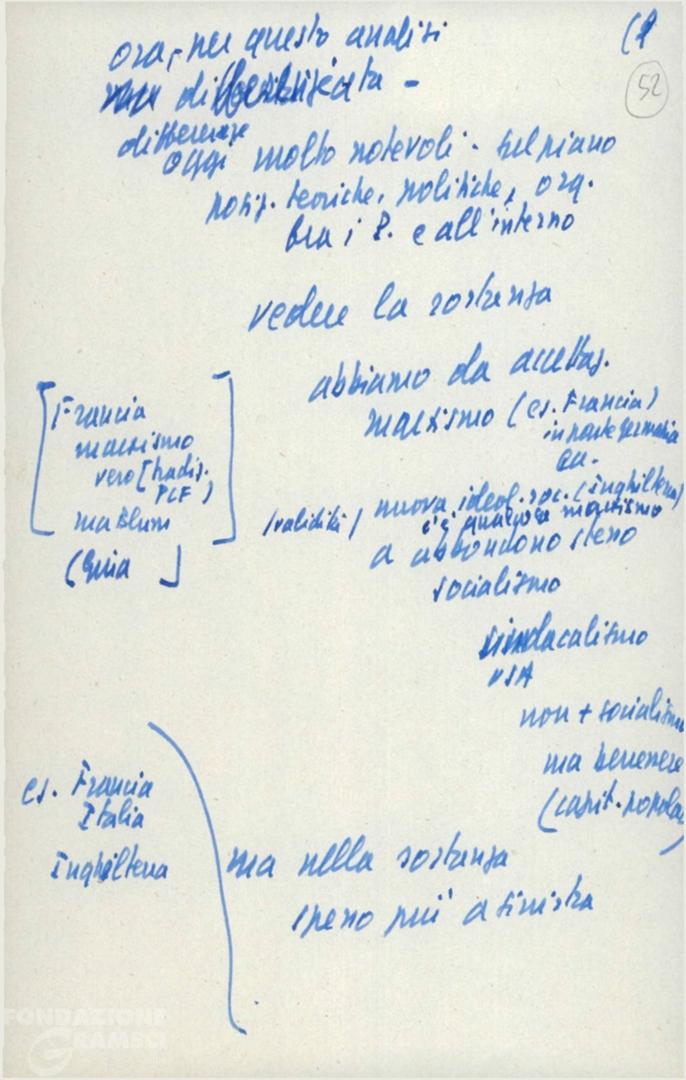 (9
52
ora, per questo analisi
differenziata -
differenze
oggi molto notevoli - sul piano
posiz. teoriche, politiche, org.
tra i P. e all'interno
vedere la sostanza
abbiamo da accettaz.
marxismo (es. Francia)
in parte germania
ecc.
nuova ideol. soc. (inghilterra)
c'è qualcosa marxismo
a abbandono stesso
socialismo
sindacalismo
USA
non + socialismo
ma benessere
(capit. popola
[Francia
marxismo
vero [tradiz.
PCF)
ma Blum
(validità)
es. Francia
Italia
Inghilterra
ma nella sostanza
spesso più a sinistra
FONDAZIONE
GRAMSCI